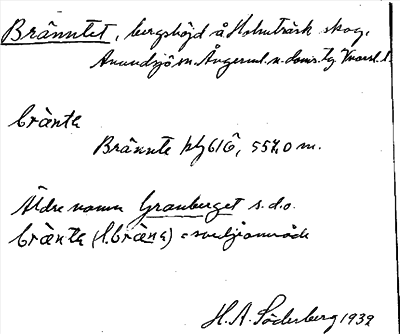 Bränntet, bergshöjd å Holmträsk skog,
Anundsjö sn. Ångerml. n. doms. tg
bränta
Brännte 616, 557,0 m.
Äldre namn Granberget s.d.o.
bränta (f. bräna) = svedjeområde
H. A. Söderberg 1932